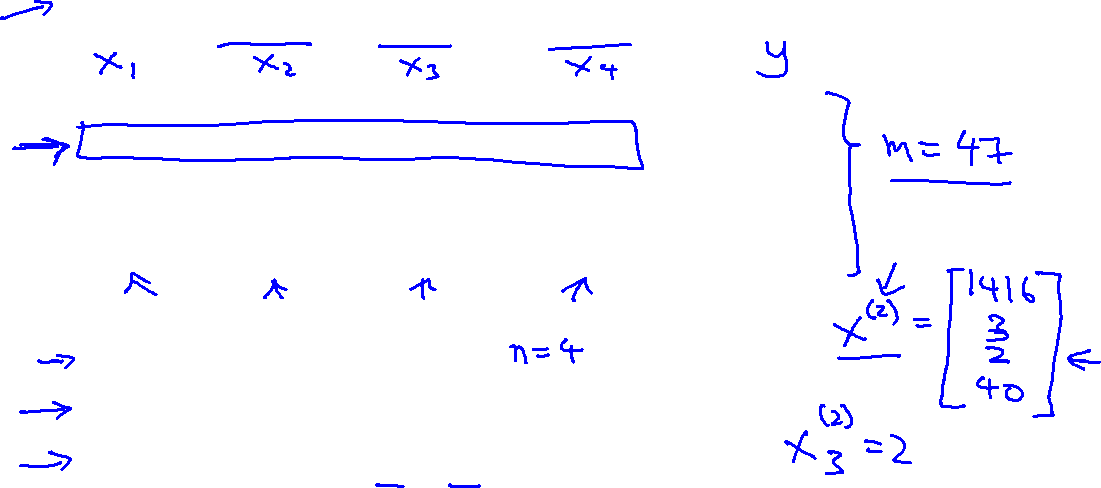 x₁ x₂ x₃ x₄ y
m = 47
x⁽²⁾ = [1416 3 2 40]
n = 4
x₃⁽²⁾ = 2